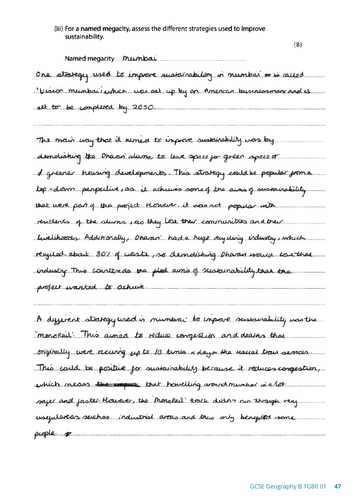 (iii) For a named megacity, assess the different strategies used to improve
sustainability.
(8)
Named megacity mumbai
One strategy used to improve sustainability in mumbai is called
'Vision mumbai', which was set up by an American businessman and is
set to be completed by 2050.
The main way that it aimed to improve sustainability was by
demolishing the Dharavi slums, to leave space for green space or
greener housing developments. This strategy could be popular from a
top-down perspective, as it achieves some of the aims of sustainability
that were part of the project. However, it was not popular with
residents of the slums, as they lose their communities and their
livelihoods. Additionally, Dharavi had a huge recycling industry, which
recycled about 80% of waste, so demolishing Dharavi would lose that
industry. This contradicts the aims of sustainability that the
project wanted to achieve.
A different strategy used in mumbai to improve sustainability was the
'monorail'. This aimed to reduce congestion and deaths that
originally were occuring up to 10 times a day on the usual train services.
This could be positive for sustainability because it reduces congestion,
which means that travelling around mumbai is a lot
safer and faster. However, the 'MonoRail' track didn't run through very
useful areas such as industrial areas and thus only benefited some
people.
GCSE Geography B 1GB0 01 47